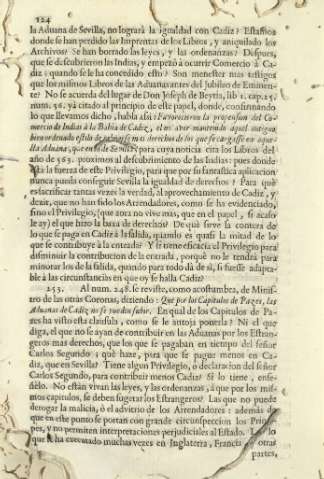 124
la Aduana de Sevilla, no logrará la igualdad con Cadiz? Estamos
donde se han perdido las Imprentas de los Libros, y aniquilado los
Archivos? Se han borrado las leyes, y las ordenanzas? Despues,
que se descubrieron las Indias, y empezó a ocurrir Comercio à Ca-
diz; quando se le ha concedido esto? Son menester mas testigos
que los mismos Libros de las Aduanas antes del Jubileo de Emmen-
te? No se acuerda del lugar de Don Joseph de Beytia, lib 1. cap. 25.
num. 56. yà citado al principio de este papel, donde, confirmando
lo que llevamos dicho, habla assi: Favorecieron la propension del Co-
mercio de Indias à la Bahìa de Cadiz, el no aver mantenido aquel antiguo,
bien ordenado estilo de
lla Aduana, que en la de Sevilla? Para cuya noticia cita los Libros del
año de 563. proximos al descubrimiento de las Indias: pues donde
està la fuerza de este Privilegio, para que por su fantastica aplicacion
nunca pueda conseguir Sevilla la igualdad de derechos? Para què
es sacrificar tantas vezes la verdad, al aprovechamiento de Cadiz, y
dezir, que no han sido los Arrendadores, como se ha evidenciado,
sino el Privilegio, (que aora no vive mas, que en el papel, si acaso
le ay) el que hizo la baxa de derechos? De què sirve la contra de
lo que se paga en Cadiz à la salida, quando es quasi la mitad de lo
que se contribuye à la entrada? Y si tiene eficacia el Privilegio para
disminuir la contribucion de la entrada, porquè no le tendrà para
minorar los de la salida, quando para todo dà de sì, si fuesse adapta-
ble à las circunstancias en que oy se halla Cadiz?
253. Al num. 248. se reviste, como acostumbra, de Minis-
tro de las otras Coronas, diziendo: Que por los Capitulos de Pazes, las
Aduanas de Cadiz no se pueden subir. En qual de los Capitulos de Pa-
zes ha visto esta clausula, como se le antoja ponerla? Ni el que
diga, el que no se ayan de contribuir en las Aduanas por los Estran-
geros mas derechos, que los que se pagaban en tiempo del señor
Carlos Segundo; què haze, para que se pague menos en Ca-
diz, que en Sevilla? Tiene algun Privilegio, o declaracion del señor
Carlos Segundo, para contribuir menos Cadiz? Si lo tiene, ense-
ñelo. No estàn vivas las leyes, y las ordenanzas, à que por los mis-
mos capitulos, se deben sugetar los Estrangeros? Las que no puede
derogar la malicia, ò el advitrio de los Arrendadores: además de
que en este punto se portan con grande circunspeccion los Prin-
pes, y no permiten interpretaciones perjudiciales al Estado. Lo
que se ha executado muchas vezes en Inglaterra, Francia, y otras
partes,